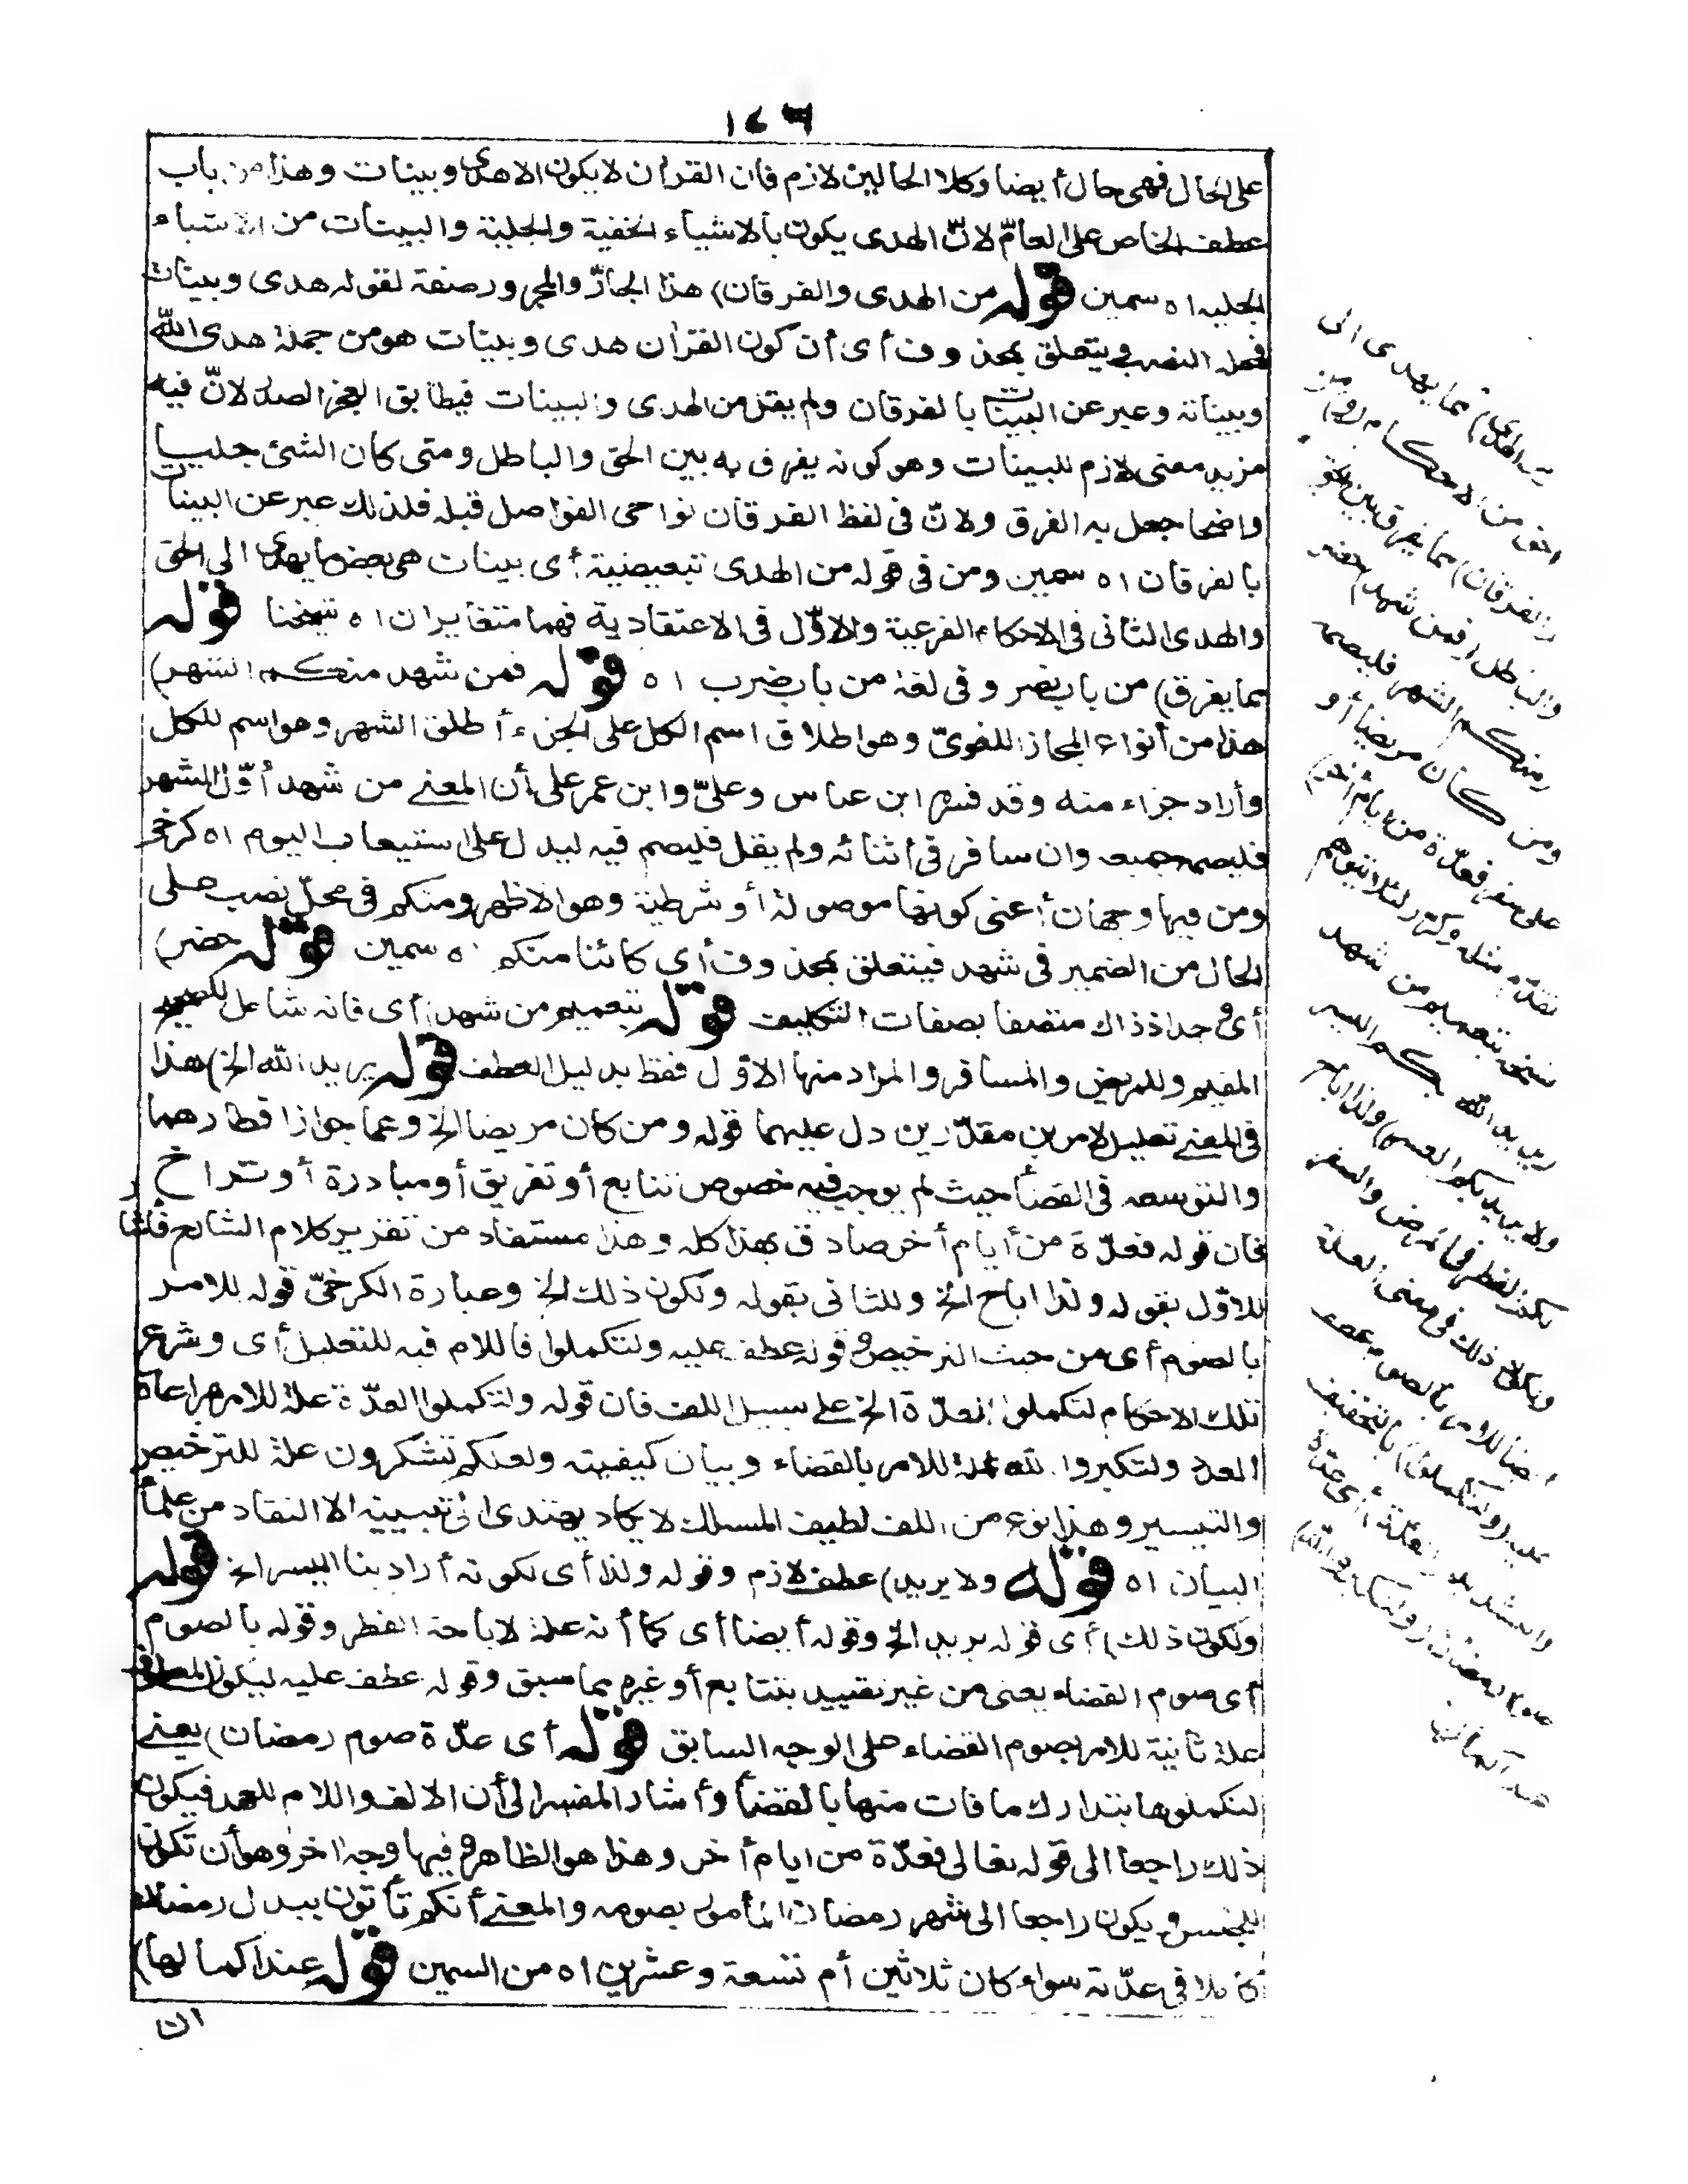 ١٤٦
على الحال فهى حال أيضا وكلا الحالين لازم فان القرآن لا يكون الا هدى وبينات وهذا من باب
عطف الخاص على العامّ لانّ الهدى يكون بالاشياء الخفية والجلية والبينات من الاشياء
الجلية اه سمين قوله من الهدى والفرقان) هذا الجارّ والمجرور صفة لقوله هدى وبينات
فمحله النصب ويتعلق بمحذوف أى أن كون القرآن هدى وبينات هو من جملة هدى الله
وبيناته وعبر عن البينات بالفرقان ولم يقل من الهدى والبينات فيطابق العجز الصدر لانّ فيه
مزيد معنى لازم للبينات وهو كونه يفرق به بين الحق والباطل ومتى كان الشئ جليا
واضحا جعل به الفرق ولانّ فى لفظ الفرقان تواخى الفواصل قبله فلذلك عبر عن البينات
بالفرقان اه سمين ومن فى قوله من الهدى تبعيضية أى بينات هى بعض ما يهدى الى الحق
والهدى الثانى فى الاحكام الفرعية والاوّل فى الاعتقادية فهما متغايران اه شيخنا قوله
مما يفرق) من باب نصر وفى لغة من باب ضرب اه قوله فمن شهد منكم الشهر)
هذا من أنواع المجاز اللغوىّ وهو اطلاق اسم الكل على الجزء أطلق الشهر وهو اسم للكل
وأراد جزاء منه وقد فسره ابن عباس وعلىّ وابن عمر على أن المعنى من شهد أوّل الشهر
فليصمه جميعه وان سافر فى أثنائه ولم يقل فليصم فيه ليدل على استيعاب اليوم اه كرخى
ومن فيها وجهان أعنى كونها موصولة أو شرطية وهو الاظهر ومنكم فى محلّ نصب على
الحال من الضمير فى شهد فيتعلق بمحذوف أى كائنا منكم اه سمين قوله حضر)
أى وجد اذ ذاك متصفا بصفات التكليف قوله بتعميم من شهد) أى فانه شامل للصحيح
المقيم وللمريض والمسافر والمراد منها الاوّل فقط بدليل العطف قوله يريد الله الخ) هذا
فى المعنى تعليل لامرين مقدّرين دل عليهما قوله ومن كان مريضا الخ وهما جواز افطارهما
والتوسعه فى القضأ حيث لم يوجب فيه خصوص تتابع أو تفريق أو مبادرة أو تراخ
فان قوله فعدّة من أيام أخر صادق بهذا كله وهذا مستفاد من تقرير كلام الشارح فأشار
للاوّل بقوله ولذا اباح الخ وللثانى بقوله ولكون ذلك الخ وعبارة الكرخىّ قوله للامر
بالصوم أى من حيث الترخيص وقوله عطف عليه ولتكملوا فاللام فيه للتعليل أى وشرع
تلك الاحكام لتكملوا العدّة الخ على سبيل اللف فان قوله ولتكملوا العدّة علة للامر بمراعاة
العدد ولتكبروا الله علة للامر بالقضاء وبيان كيفيته ولعلكم تشكرون علة للترخيص
والتيسير وهذا نوع من اللف لطيف المسلك لا يكاد يهتدى الى تبيينه الا النقاد من علمأ
البيان اه قوله ولا يريد) عطف لازم وقوله ولذا أى لكونه أراد بنا اليسر الخ قوله
ولكون ذلك) أى قوله يريد الخ وقوله أيضا أى كما أنه علة لاباحة الفطر وقوله بالصوم
أى صوم القضاء يعنى من غير تقييد بتتابع أو غيره بما سبق وقوله عطف عليه ليكون المعطوف
علة ثانية للامر بصوم القضاء على الوجه السابق قوله أى عدّة صوم رمضان) يعنى
لتكملوها بتدارك ما فات منها بالقضأ وأشار المفسر الى أن الالف واللام للعهد فيكون
ذلك راجعا الى قوله تعالى فعدّة من ايام أخر وهذا هو الظاهر وفيها وجه اخر وهو أن تكون
للجنس ويكون راجعا الى شهر رمضان المأمور بصومه والمعنى أنكم تأتون ببدل رمضان
كاملا فى عدّته سواء كان ثلاثين أم تسعة وعشرين اه من السمين قوله عند اكمالها)
ان
من الهدى) مما يهدى الى
الحق من الاحكام (و) من
(الفرقان) مما يفرق بين الحق
والباطل (فمن شهد) حضر
(منكم الشهر فليصمه
ومن كان مريضا أو
على سفر فعدّة من ايام أخر)
تقدّم مثله وكرر لئلا يتوهم
نسخه بتعميم من شهد
(يريد الله بكم اليسر
ولا يريد بكم العسر) ولذا اباح
لكم الفطر فى المرض والسفر
ولكون ذلك فى معنى العلة
أيضا للامر بالصوم عطف
عليه (ولتكملوا) بالتخفيف
والتشديد (العدّة) أى عدّة
صوم رمضان (ولتكبروا الله)
عند اكمالها